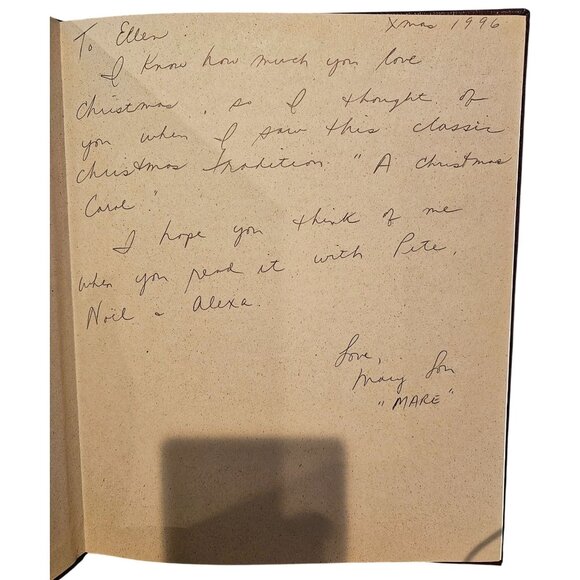 To Ellen Xmas 1996
I know how much you love
Christmas, so I thought of
you when I saw this classic
Christmas Tradition "A Christmas
Carol"
I hope you think of me
when you read it with Pete,
Noël & Alexa.
Love,
Mary Lou
"MARE"